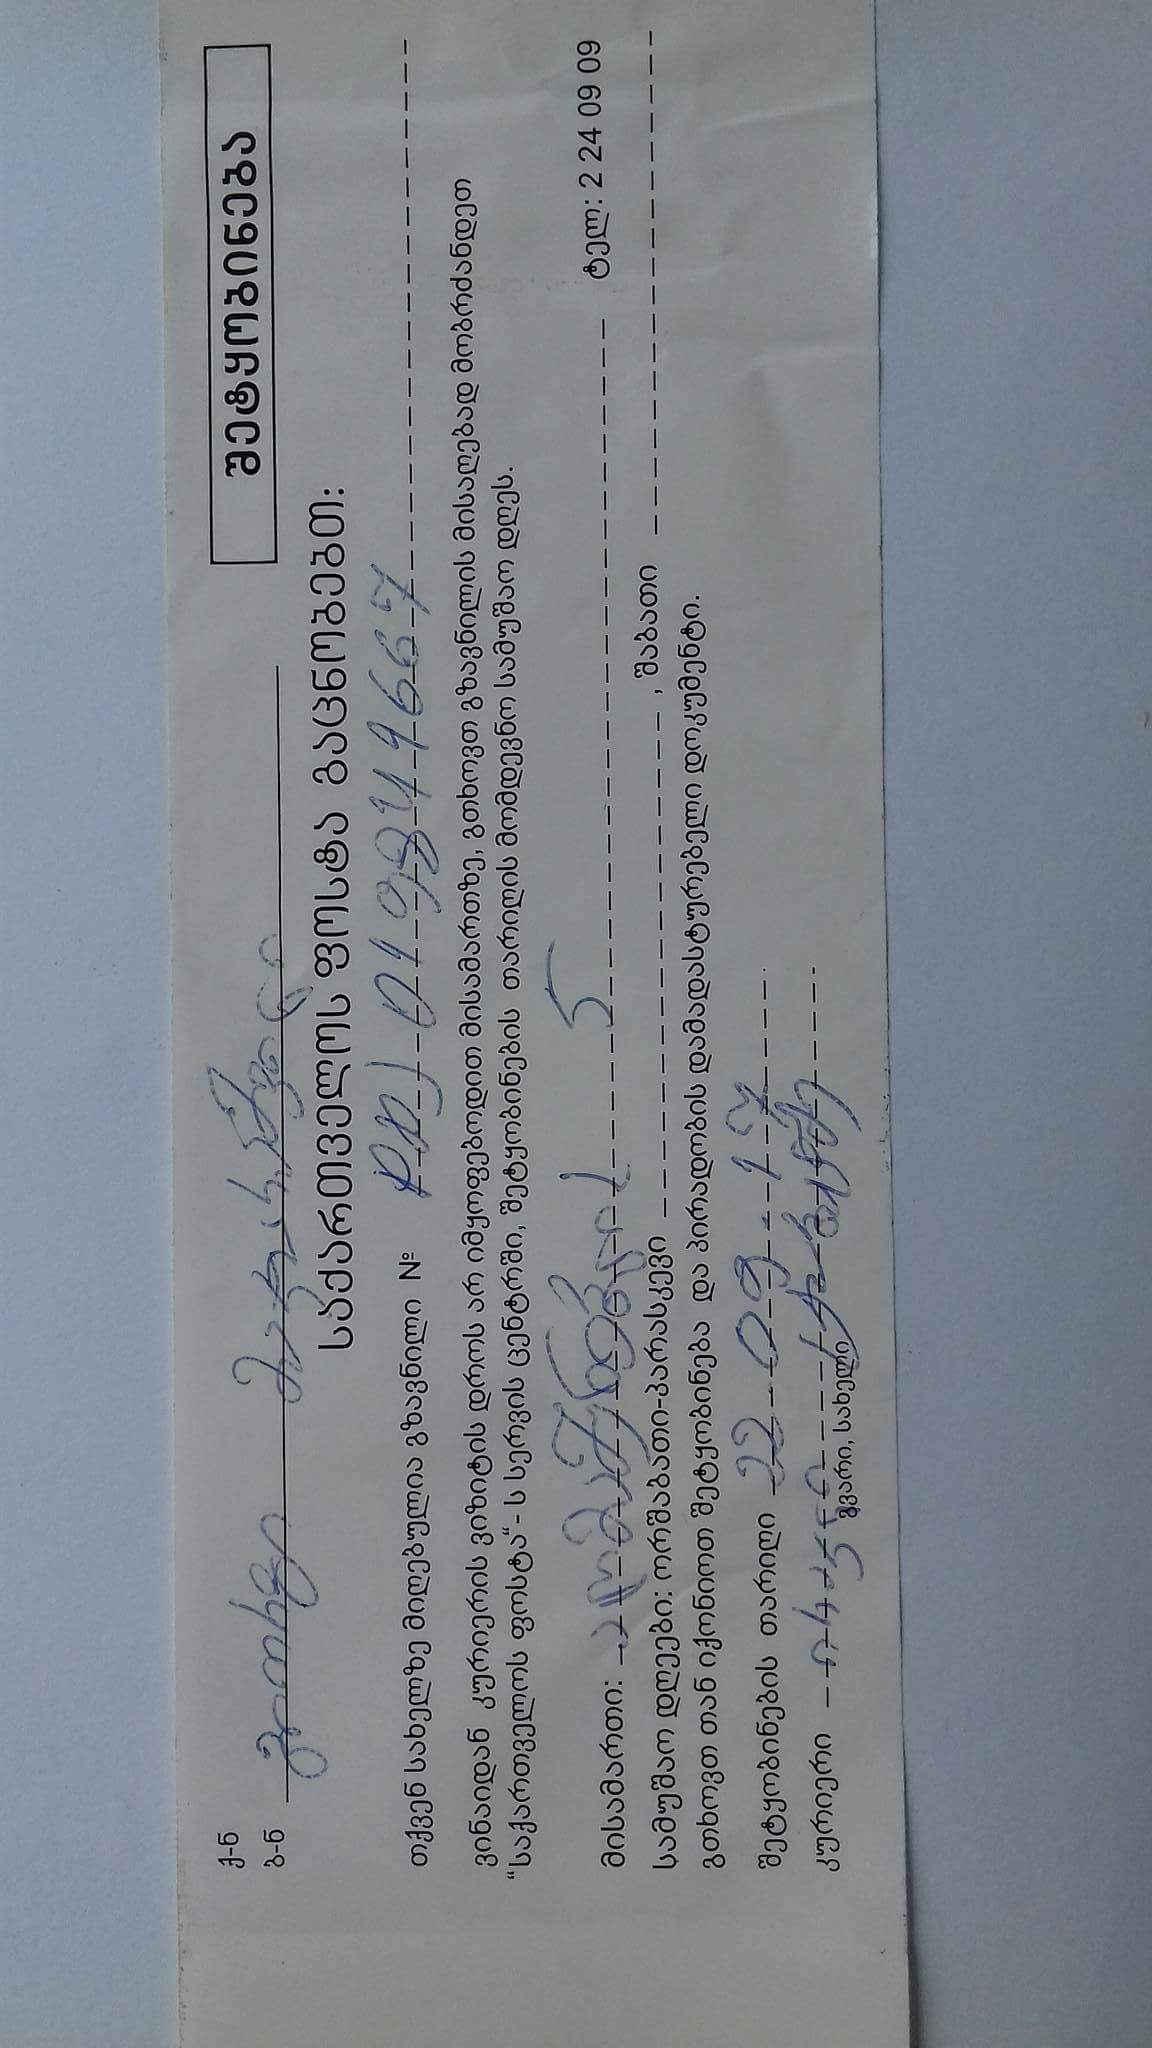 შეტყობინება
ქ-ნ
ბ-ნ
საქართველოს ფოსტა გაცნობებთ:
თქვენ სახელზე მიღებულია გზავნილი №
ვინაიდან კურიერის ვიზიტის დროს არ იმყოფებოდით მისამართზე, გთხოვთ გზავნილის მისაღებად მობრძანდეთ
“საქართველოს ფოსტა“- ს სერვის ცენტრში, შეტყობინების თარიღის მომდევნო სამუშაო დღეს.
მისამართი: 5 ტელ: 2 24 09 09
სამუშაო დღეები: ორშაბათი-პარასკევი , შაბათი
გთხოვთ თან იქონიოთ შეტყობინება და პირადობის დამადასტურებელი დოკუმენტი.
შეტყობინების თარიღი 22 - 09 - 17
კურიერი
გვარი, სახელი